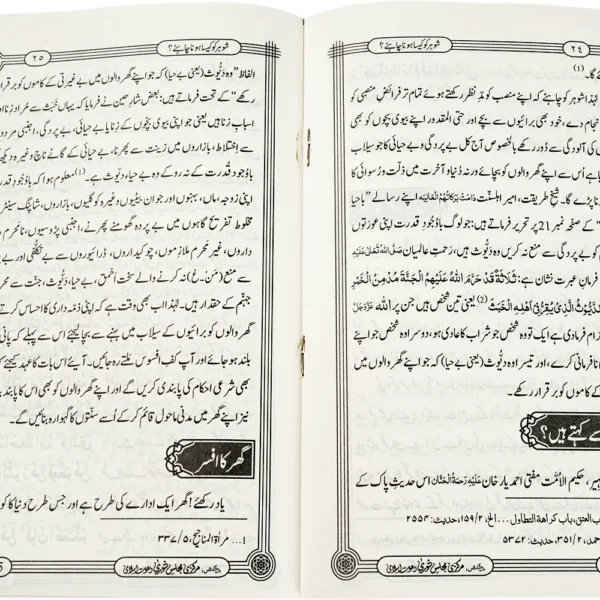 ۲۴
شوہر کو کیسا ہونا چاہئے؟
ئے گا۔ (۱)
لہٰذا شوہر کو چاہئے کہ اپنے منصب کو مدِّ نظر رکھتے ہوئے تمام تر فرائضِ منصبی کو
نجام دے، خود بھی برائیوں سے بچے اور حتّی المقدور اپنے بیوی بچوں کو بھی
کی آلودگی سے دور رکھے بالخصوص آج کل بے پردگی و بے حیائی کا جو سیلاب
یا ہے اُس سے اپنے گھر والوں کو بچائے ورنہ دُنیا و آخرت میں ذلّت و رُسوائی کا
نا پڑے گا۔ شیخِ طریقت، امیرِ اہلسنّت دَامَتْ بَرَکَاتُہُمُ الْعَالِیَہ اپنے رسالے "باحیا
" کے صفحہ نمبر 21 پر تحریر فرماتے ہیں: جو لوگ باوُجُودِ قدرت اپنی عورتوں
کو بے پردگی سے منع نہ کریں وہ دَیُّوث ہیں، رحمتِ عالمیان صَلَّی اللہُ تَعَالٰی عَلَیْہِ
فرمانِ عبرت نشان ہے: ثَلَاثَةٌ قَدْ حَرَّمَ اللهُ عَلَيْهِمُ الْجَنَّةَ مُدْمِنُ الْخَمْرِ
وَالدَّيُّوثُ الَّذِي يُقِرُّ فِي اَهْلِهِ الْخَبَثَ (2) یعنی تین شخص ہیں جن پر اللہ عَزَّوَجَلَّ
رام فرما دی ہے ایک تو وہ شخص جو شراب کا عادی ہو، دوسرا وہ شخص جو اپنے
نافرمانی کرے، اور تیسرا وہ دیّوث (یعنی بے حیا) کہ جو اپنے گھر والوں میں
کے کاموں کو برقرار رکھے۔
سے کہتے ہیں؟
ہیر، حکیمُ الاُمَّت مفتی احمد یار خان عَلَیْہِ رَحْمَۃُ الْحَنَّان اس حدیثِ پاک کے
ب العتق، باب کراھة التطاول ... الخ، ۱۵۹/۲، حدیث: ۲۵۵۴
حمد، ۳۵۱/۲، حدیث: ۵۳۷۲
پیشکش: مرکزی مجلسِ شوریٰ (دعوتِ اسلامی)
شوہر کو کیسا ہونا چاہئے؟
۲۵
الفاظ "وہ دَیُّوث (یعنی بے حیا) کہ جو اپنے گھر والوں میں بے غیرتی کے کاموں کو برقرار
رکھے" کے تحت فرماتے ہیں: بعض شارحین نے فرمایا کہ یہاں خَبَث سے مُراد زِنا اور
اسبابِ زنا ہیں یعنی جو اپنی بیوی بچوں کے زنا یا بے حیائی، بے پردگی، اجنبی مردوں
سے اِختلاط، بازاروں میں زینت سے پھرنا، بے حیائی کے گانے ناچ وغیرہ دیکھ
باوُجُودِ قدرت کے نہ روکے وہ بے حیا، دیّوث ہے۔ (۱) معلوم ہوا کہ باوُجودِ قدرت
اپنی زوجہ، ماں، بہنوں اور جوان بیٹیوں وغیرہ کو گلیوں، بازاروں، شاپنگ سینٹر
مخلوط تفریح گاہوں میں بے پردہ گھومنے پھرنے، اجنبی پڑوسیوں، نامحرم
داروں، غیر محرم ملازموں، چوکیداروں، ڈرائیوروں سے بے تکلفی اور بے
سے منع (مَن۔ع) نہ کرنے والے سخت اَحْمَق، بے حیا، دَیُّوث، جنّت سے محروم
جہنّم کے حقدار ہیں۔ لہٰذا اب بھی وقت ہے کہ اپنی ذمّہ داری کا احساس کرتے
گھر والوں کو برائیوں کے سیلاب میں بہنے سے بچا لیجئے اس سے پہلے کہ پانی
بلند ہو جائے اور آپ کفِ افسوس ملتے رہ جائیں۔ آیئے اس بات کا عہد کیجئے کہ
بھی شرعی احکام کی پابندی کریں گے اور اپنے گھر والوں کو بھی اس کا پابند
نیز اپنے گھر میں مدنی ماحول قائم کر کے اُسے سنّتوں کا گہوارہ بنائیں گے۔
گھر کا افسر
یاد رکھئے! گھر ایک ادارے کی طرح ہے اور جس طرح دنیا کا کو
1... مراٰۃ المناجیح، ۳۳۷/۵
پیشکش: مرکزی مجلسِ شوریٰ (دعوتِ اسلامی)